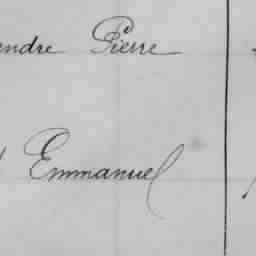 endre Pierre
Emmanuel